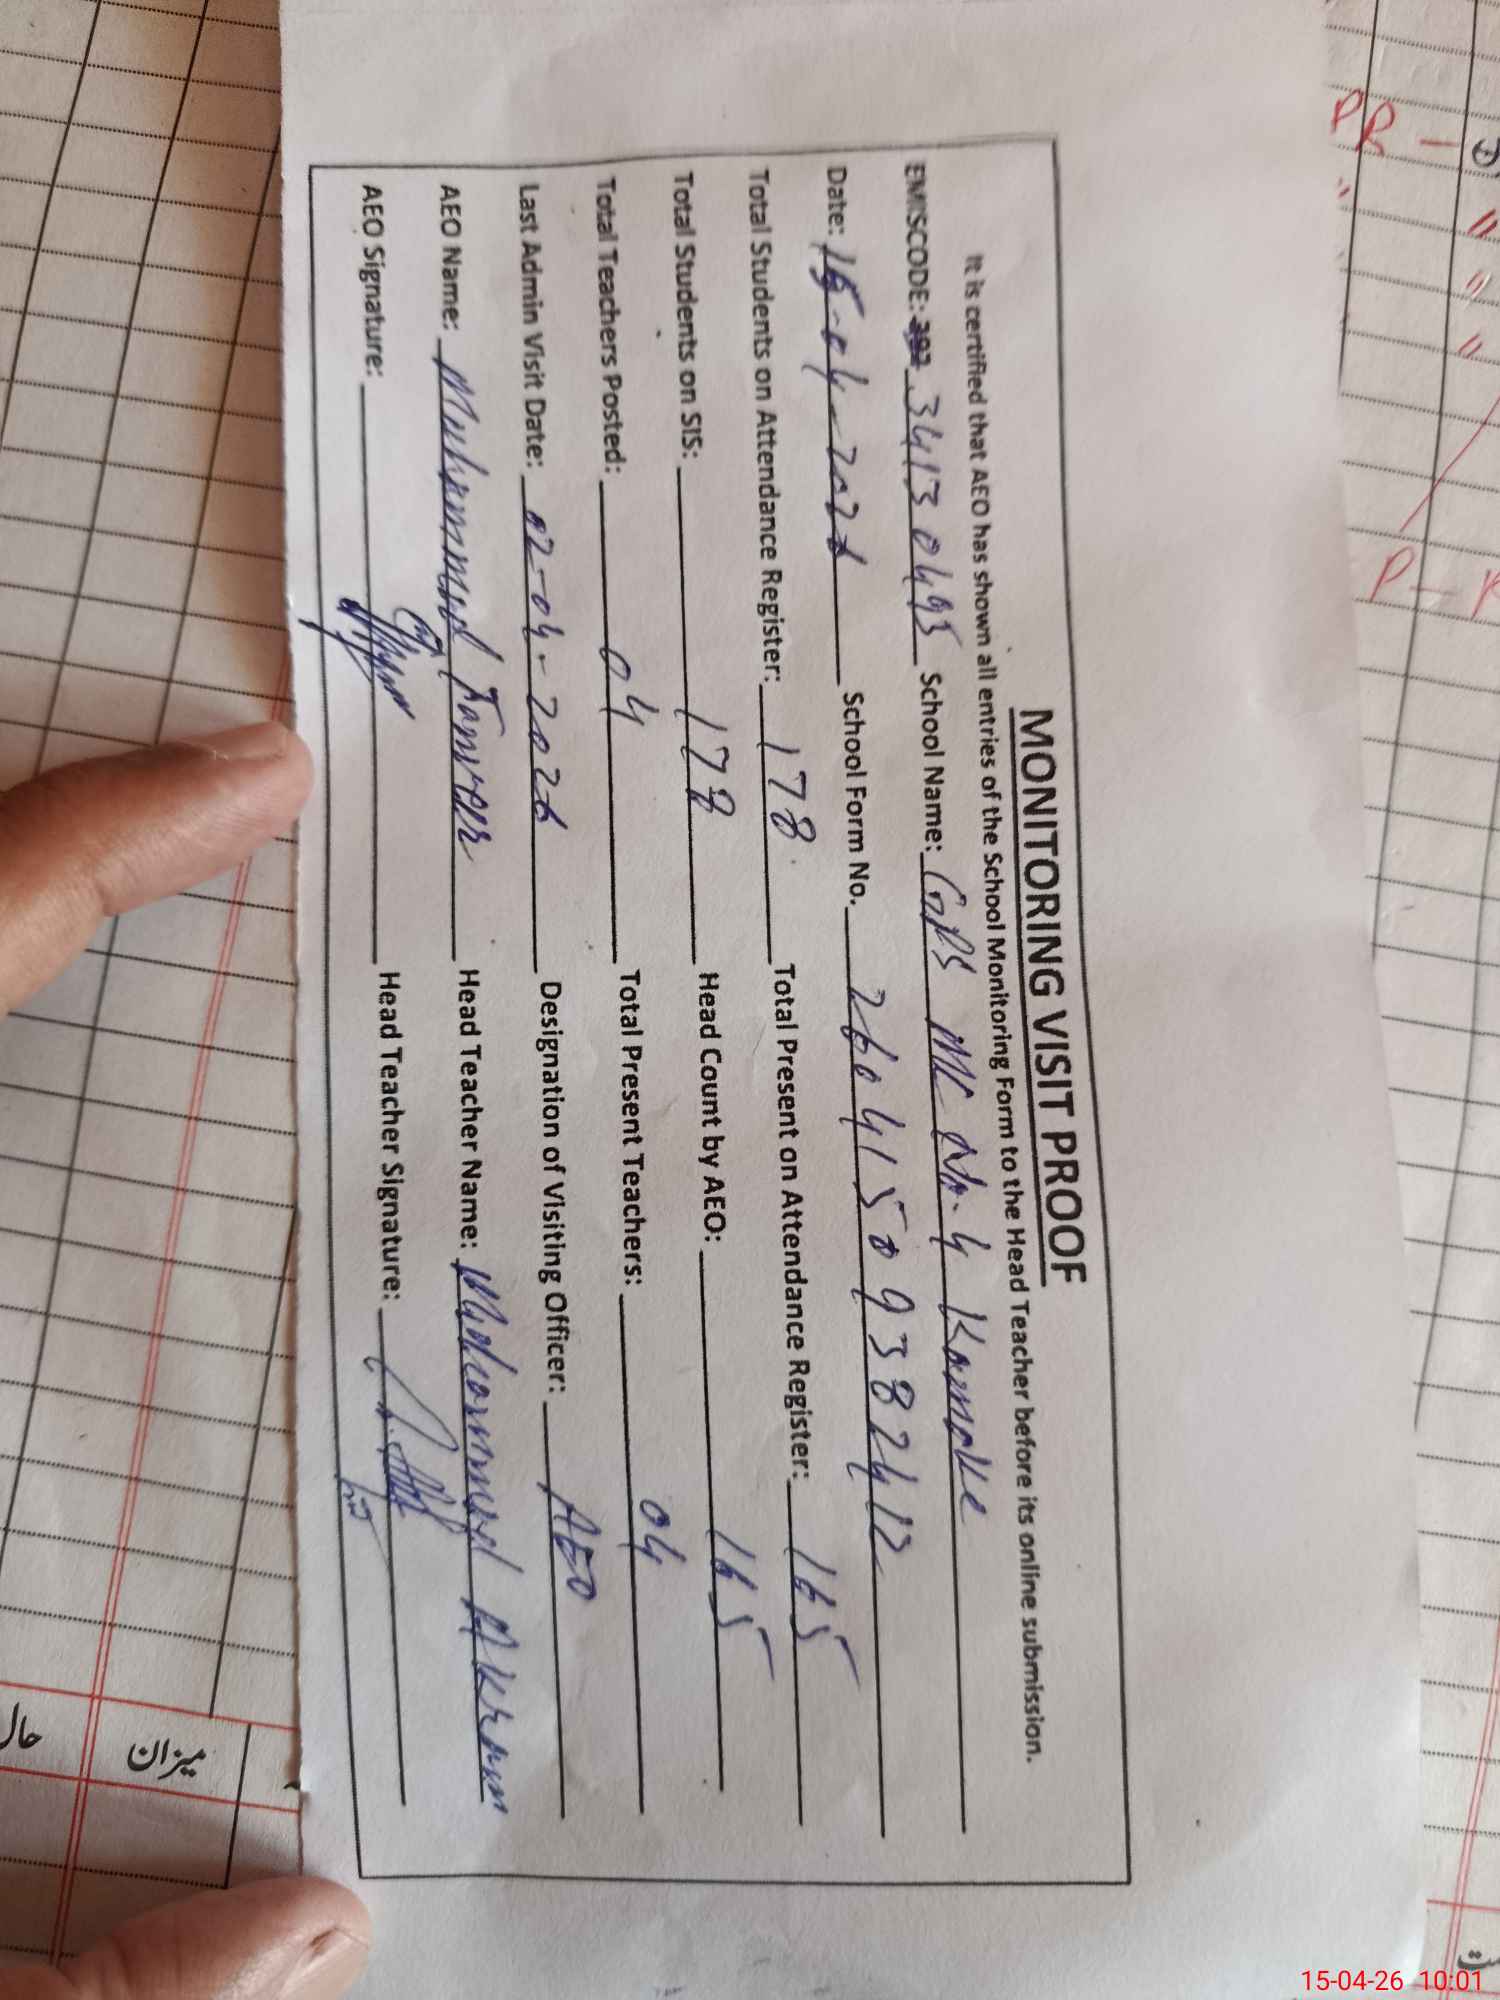 MONITORING VISIT PROOF
It is certified that AEO has shown all entries of the School Monitoring Form to the Head Teacher before its online submission.
EMISCODE: 34130495 School Name: GPS MC No.4 Kamoke
Date: 15-04-2026 School Form No. 26041509382412
Total Students on Attendance Register: 178 Total Present on Attendance Register: 165
Total Students on SIS: 178 Head Count by AEO: 165
Total Teachers Posted: 04 Total Present Teachers: 04
Last Admin Visit Date: 02-04-2026 Designation of Visiting Officer: AEO
AEO Name: Muhammad Tanveer Head Teacher Name: Muhammad Akram
AEO Signature: Head Teacher Signature:
میزان
حال
15-04-26 10:01